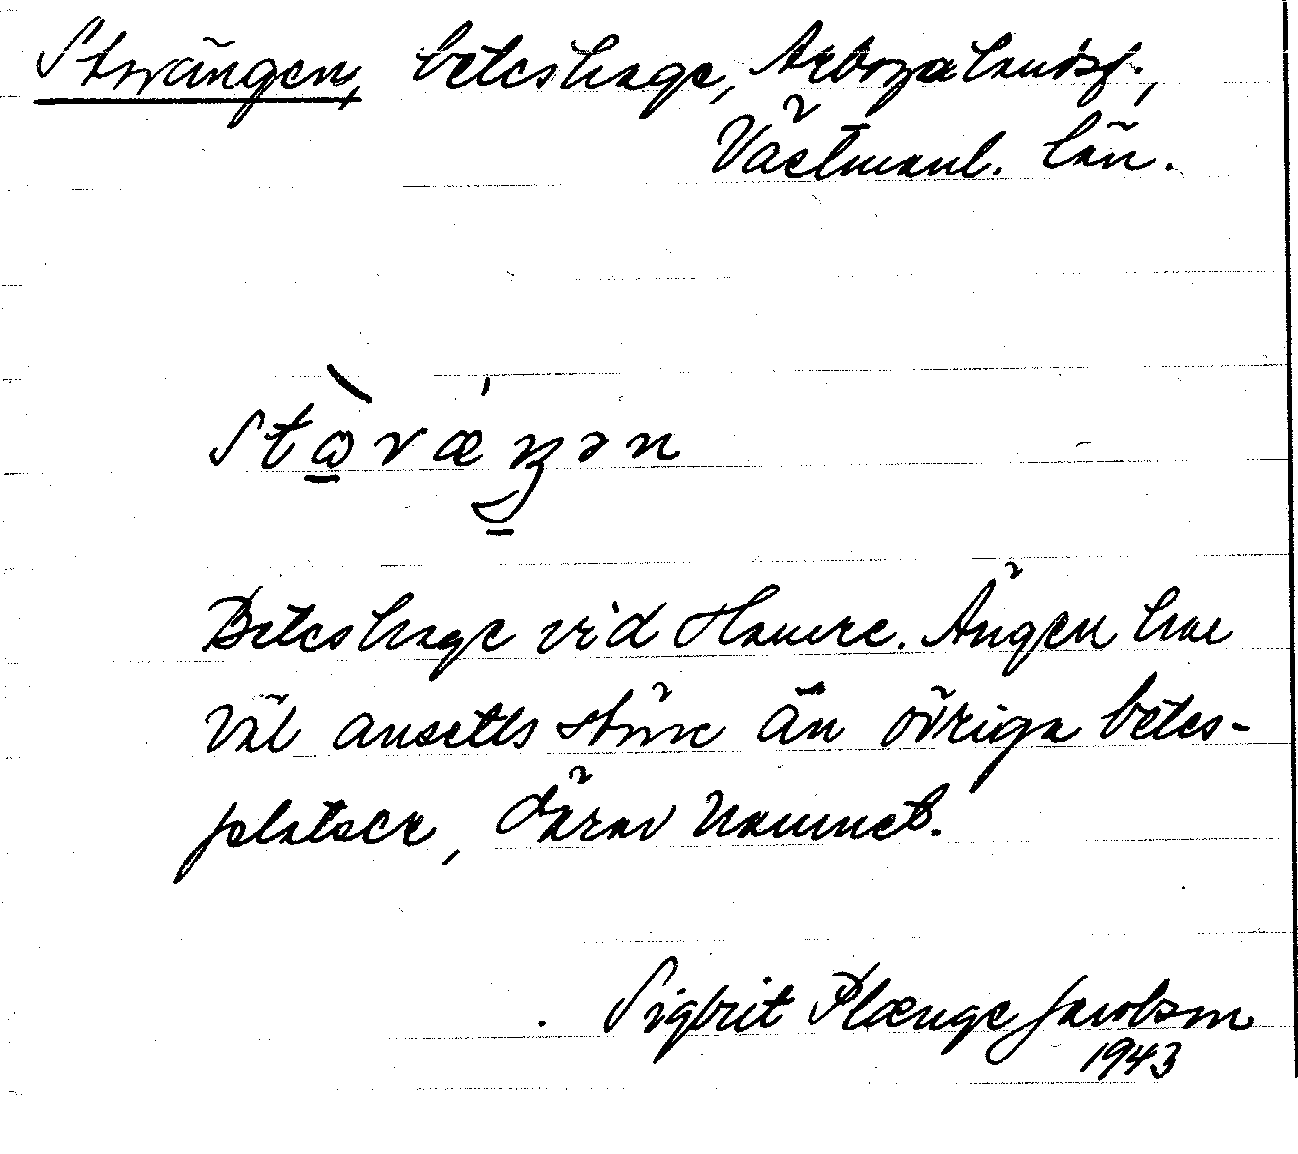 Storängen, beteshage, Arboga landsf.,
Västmanl. län.
Beteshage vid Hamre. Ängen har
väl ansetts större än övriga betes-
platser, därav namnet.
Sigbrit Plænge Jacobson
1943